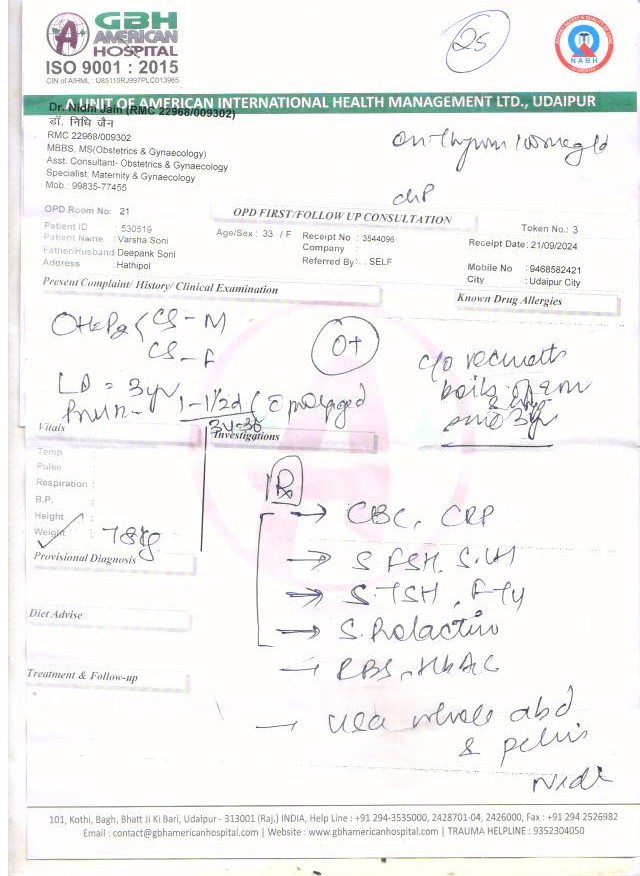 GBH
AMERICAN
HOSPITAL
ISO 9001 : 2015
CIN of AIHML : U85110RJ997PLC013965
25
NABH
A UNIT OF AMERICAN INTERNATIONAL HEALTH MANAGEMENT LTD., UDAIPUR
Dr. Nidhi Jain (RMC 22968/009302)
डॉ. निधि जैन
RMC 22968/009302
MBBS, MS(Obstetrics & Gynaecology)
Asst. Consultant- Obstetrics & Gynaecology
Specialist: Maternity & Gynaecology
Mob.: 99835-77455
OPD Room No: 21
OPD FIRST/FOLLOW UP CONSULTATION
Token No.: 3
Patient ID : 530519
Age/Sex : 33 / F
Receipt No : 3544096
Receipt Date: 21/09/2024
Patient Name : Varsha Soni
Company :
Father/Husband Deepank Soni
Referred By: . . SELF
Mobile No : 9468582421
Address : Hathipol
City : Udaipur City
Present Complaint/ History/ Clinical Examination
Known Drug Allergies
CS - M
CS - F
O+
c/o
boils
LD = 3yr
1-1½d
3yr
Vitals
Investigations
Temp :
Pulse :
Respiration :
B.P. :
Height :
Weight : 78kg
Rx
→ CBC, CRP
→ S. FSH, S. LH
→ S. TSH, FT4
→ S. Prolactin
→ RBS, HbA1C
whole abd
& pelvis
Nidhi
Provisional Diagnosis
Diet Advise
Treatment & Follow-up
101, Kothi, Bagh, Bhatt Ji Ki Bari, Udaipur - 313001 (Raj.) INDIA, Help Line : +91 294-3535000, 2428701-04, 2426000, Fax : +91 294 2526982
Email : contact@gbhamericanhospital.com | Website : www.gbhamericanhospital.com | TRAUMA HELPLINE : 9352304050